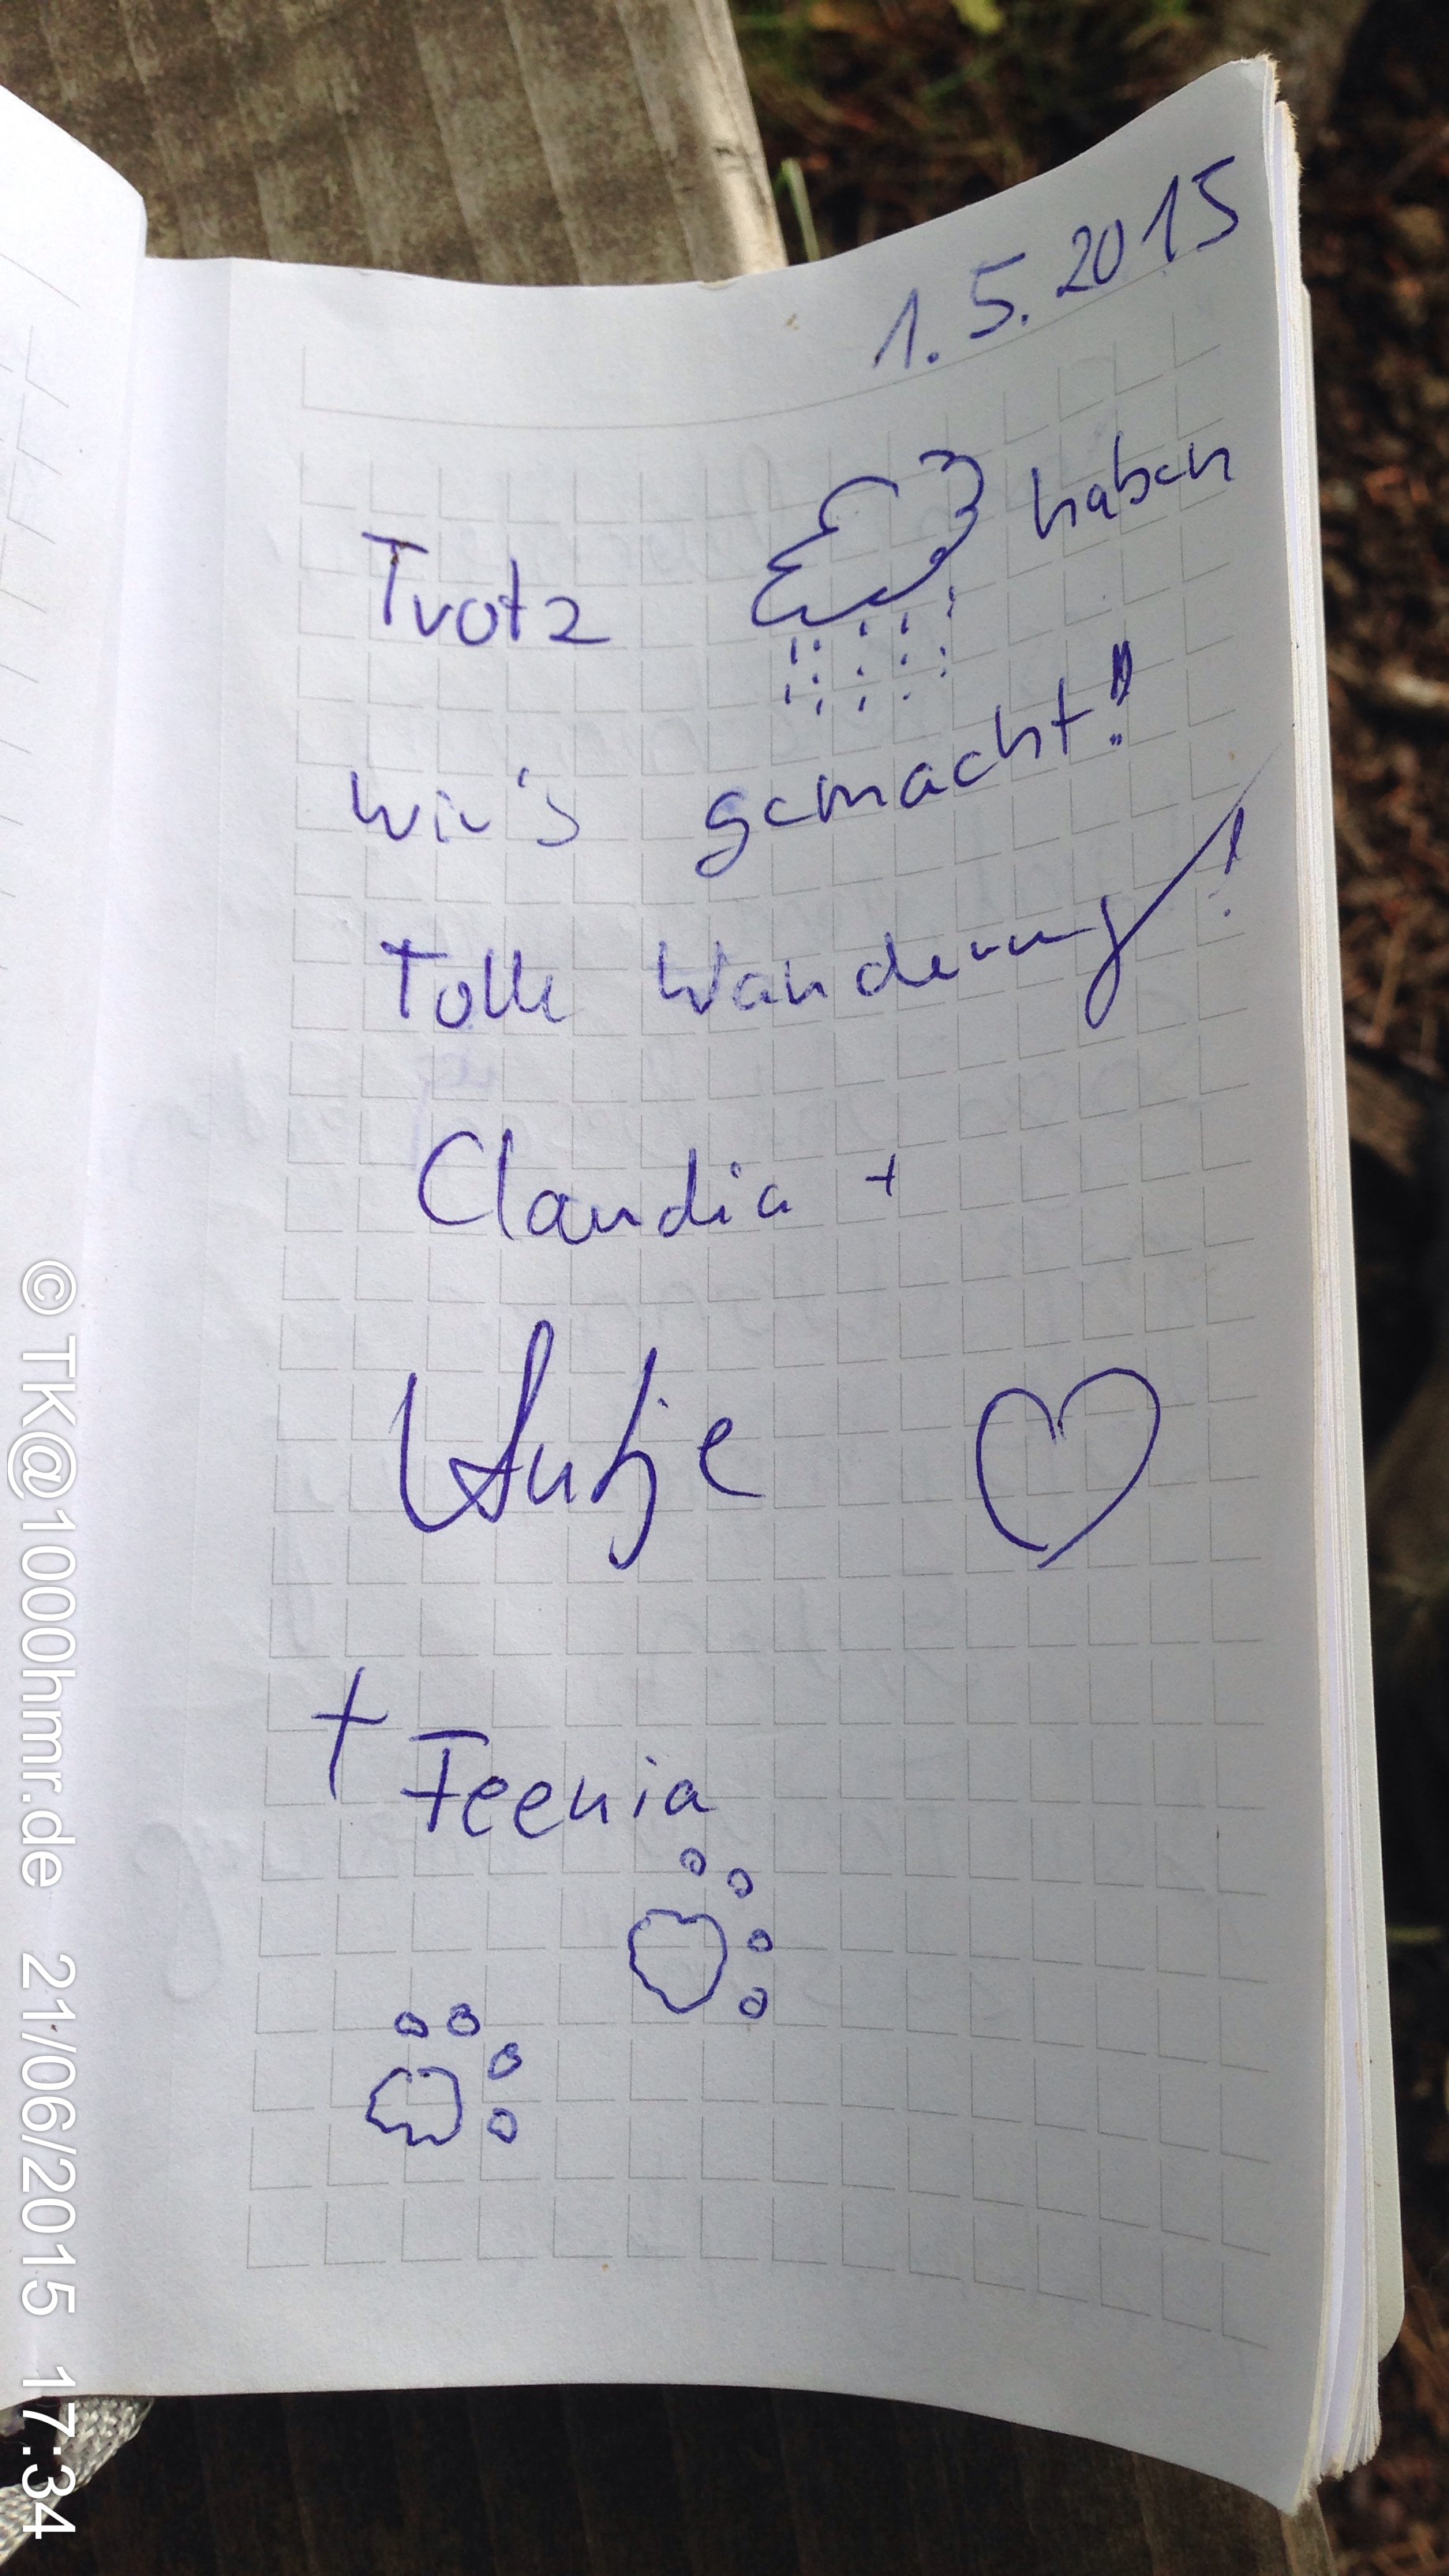 1.5.2015
Trotz haben
wir's gemacht!!
Tolle Wanderung!
Claudia +
Antje
† Feenia
© TK@1000hmr.de 21/06/2015 17:34